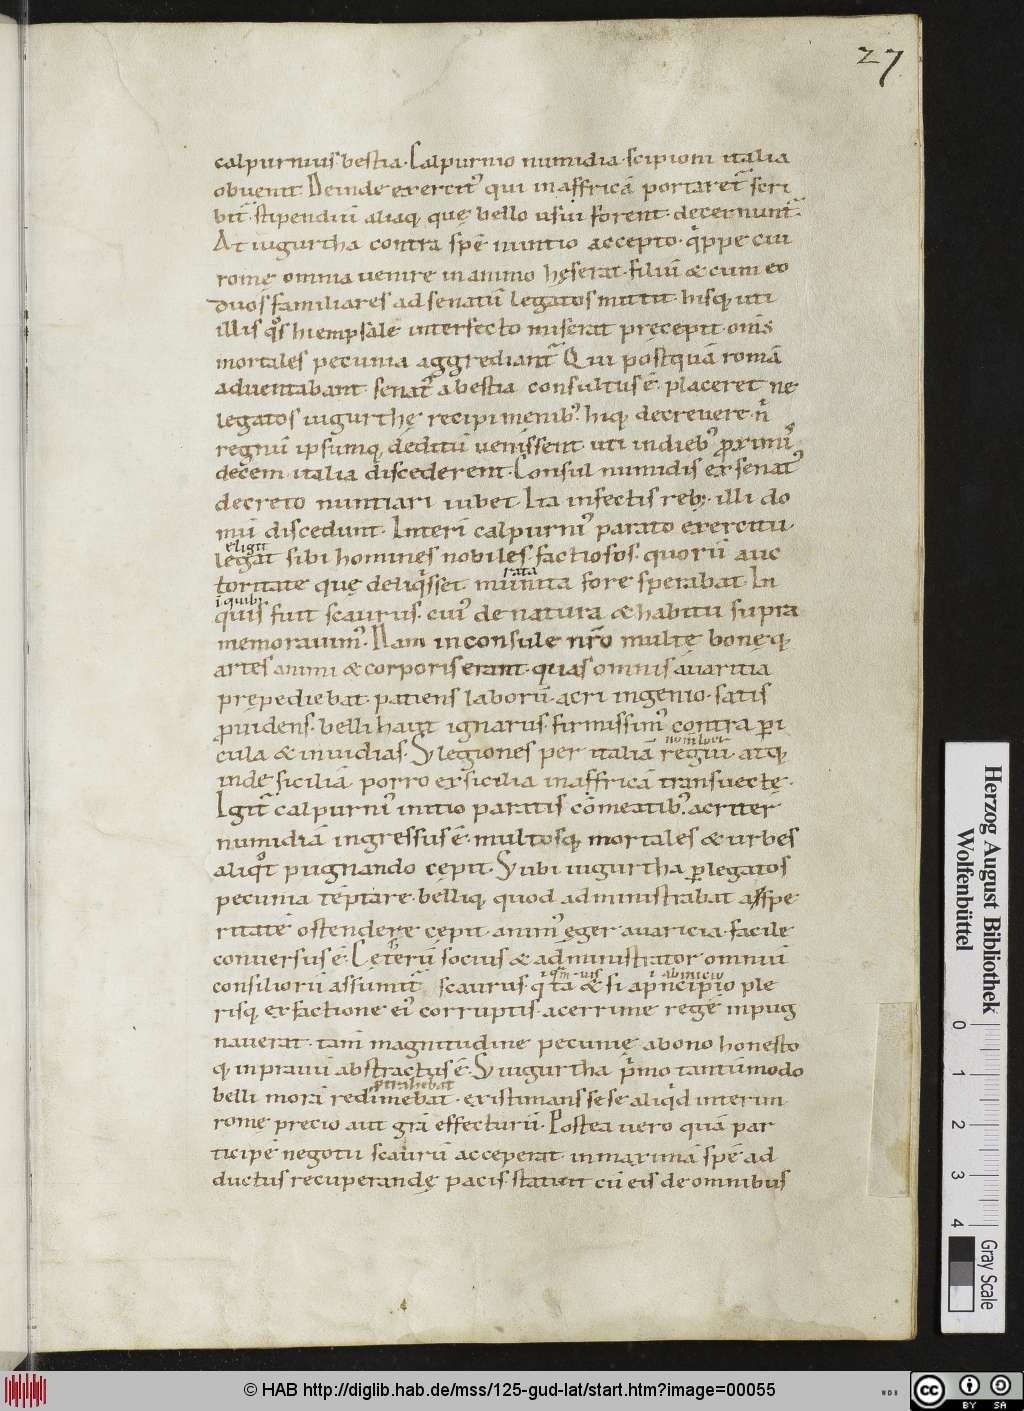 27
calpurnius bestia. Calpurnio numidia. scipioni italia
obvenit Deinde exercit᾽ qui in affricā portaret᷑ scri
bit᷑. stipendiū aliaq; quę bello usui forent. decernunt᷑.
At iugurtha contra spē nuntio accepto. qͥppe cui
romę omnia venire in animo hęserat. filiū & cum eo
duos familiares ad senatū legatos mittit. hisq; uti
illis qͦs hiempsale interfecto miserat pręcepit. om̄s
mortales pecunia aggrediant᷑ Qui postquā romā
adventabant. senat᾽ a bestia consultus ē. placeret ne
legatos iugurthę recipi menib᾽. hiq; decrevere. nͥ
regnū ipsumq; deditū venissent. uti in dieb᾽ proximi᾽
decem italia discederent. Consul numidis ex senat᾽
decreto nuntiari iubet. Ita infectis reb;. illi do
mū discedunt. Interī calpurni᾽ parato exercitu.
eligit
legat sibi homines nobiles. factiosos. quorū auc
rata
toritate quę deliqͥsset munita fore sperabat. In
ī quibᷤ
quis fuit scaurus. cui᾽ de natura & habitu supra
memoravim᾽. Nam in consule nr̄o multę bonęq;
artes animi & corporis erant. quas omnis avaritia
prępediebat. patiens laborū. acri ingenio. satis
pͮidens. belli haut ignarus. firmissim᾽ contra peri
cula & invidias. S; legiones per italiā regiū. atq;
nom̄ loci
inde siciliā. porro ex sicilia in affricā transvectę.
Igit᷑ calpurni᾽ initio paratis cōmeatib᾽. acriter
numidiā ingressus ē. multosq; mortales & urbes
aliqͦt pugnando cępit. S; ubi iugurtha p̱ legatos
pecunia tēptare. belliq; quod administrabat asspe
ritatē ostendere cępit. anim᾽ ęger avaricia. facile
conversus ē. Cęterū socius & administrator omniū
consiliorū assumit᷑ scaurus. qͥ tā & si a pͥncipio ple
i. ab inicio
risq; ex factione ei᾽ corruptis. acerrime regē inpug
naverat. tam magnitudine pecunię. a bono honesto
q; in pravū abstractus ē. S; iugurtha pͥmo tantūmodo
ꝓtrahebat
belli morā redimebat. existimans sese aliqͥd interim
romę precio aut gr̄a effecturū. Postea vero quā par
ticipē negotii scaurū acceperat. in maximā spē ad
ductus recuperandę pacis. statuit cū eis de omnibus
Herzog August Bibliothek
Wolfenbüttel
0 1 2 3 4
Gray Scale
© HAB http://diglib.hab.de/mss/125-gud-lat/start.htm?image=00055
WDB
cc BY SA